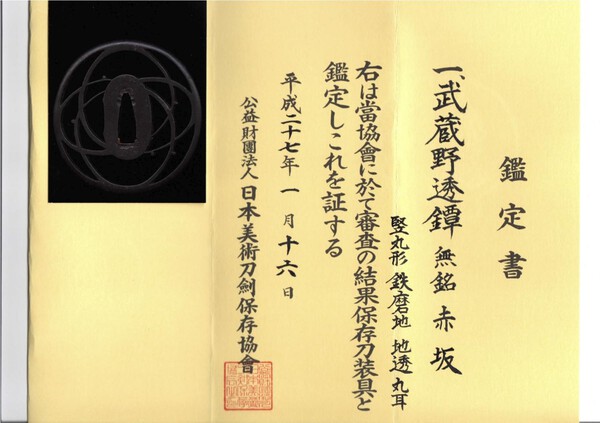 鑑定書
一、武蔵野透鐔 無銘 赤坂
竪丸形 鉄磨地 地透 丸耳
右は當協會に於て審査の結果保存刀装具と
鑑定しこれを証する
平成二十七年一月十六日
公益財團法人 日本美術刀劍保存協會